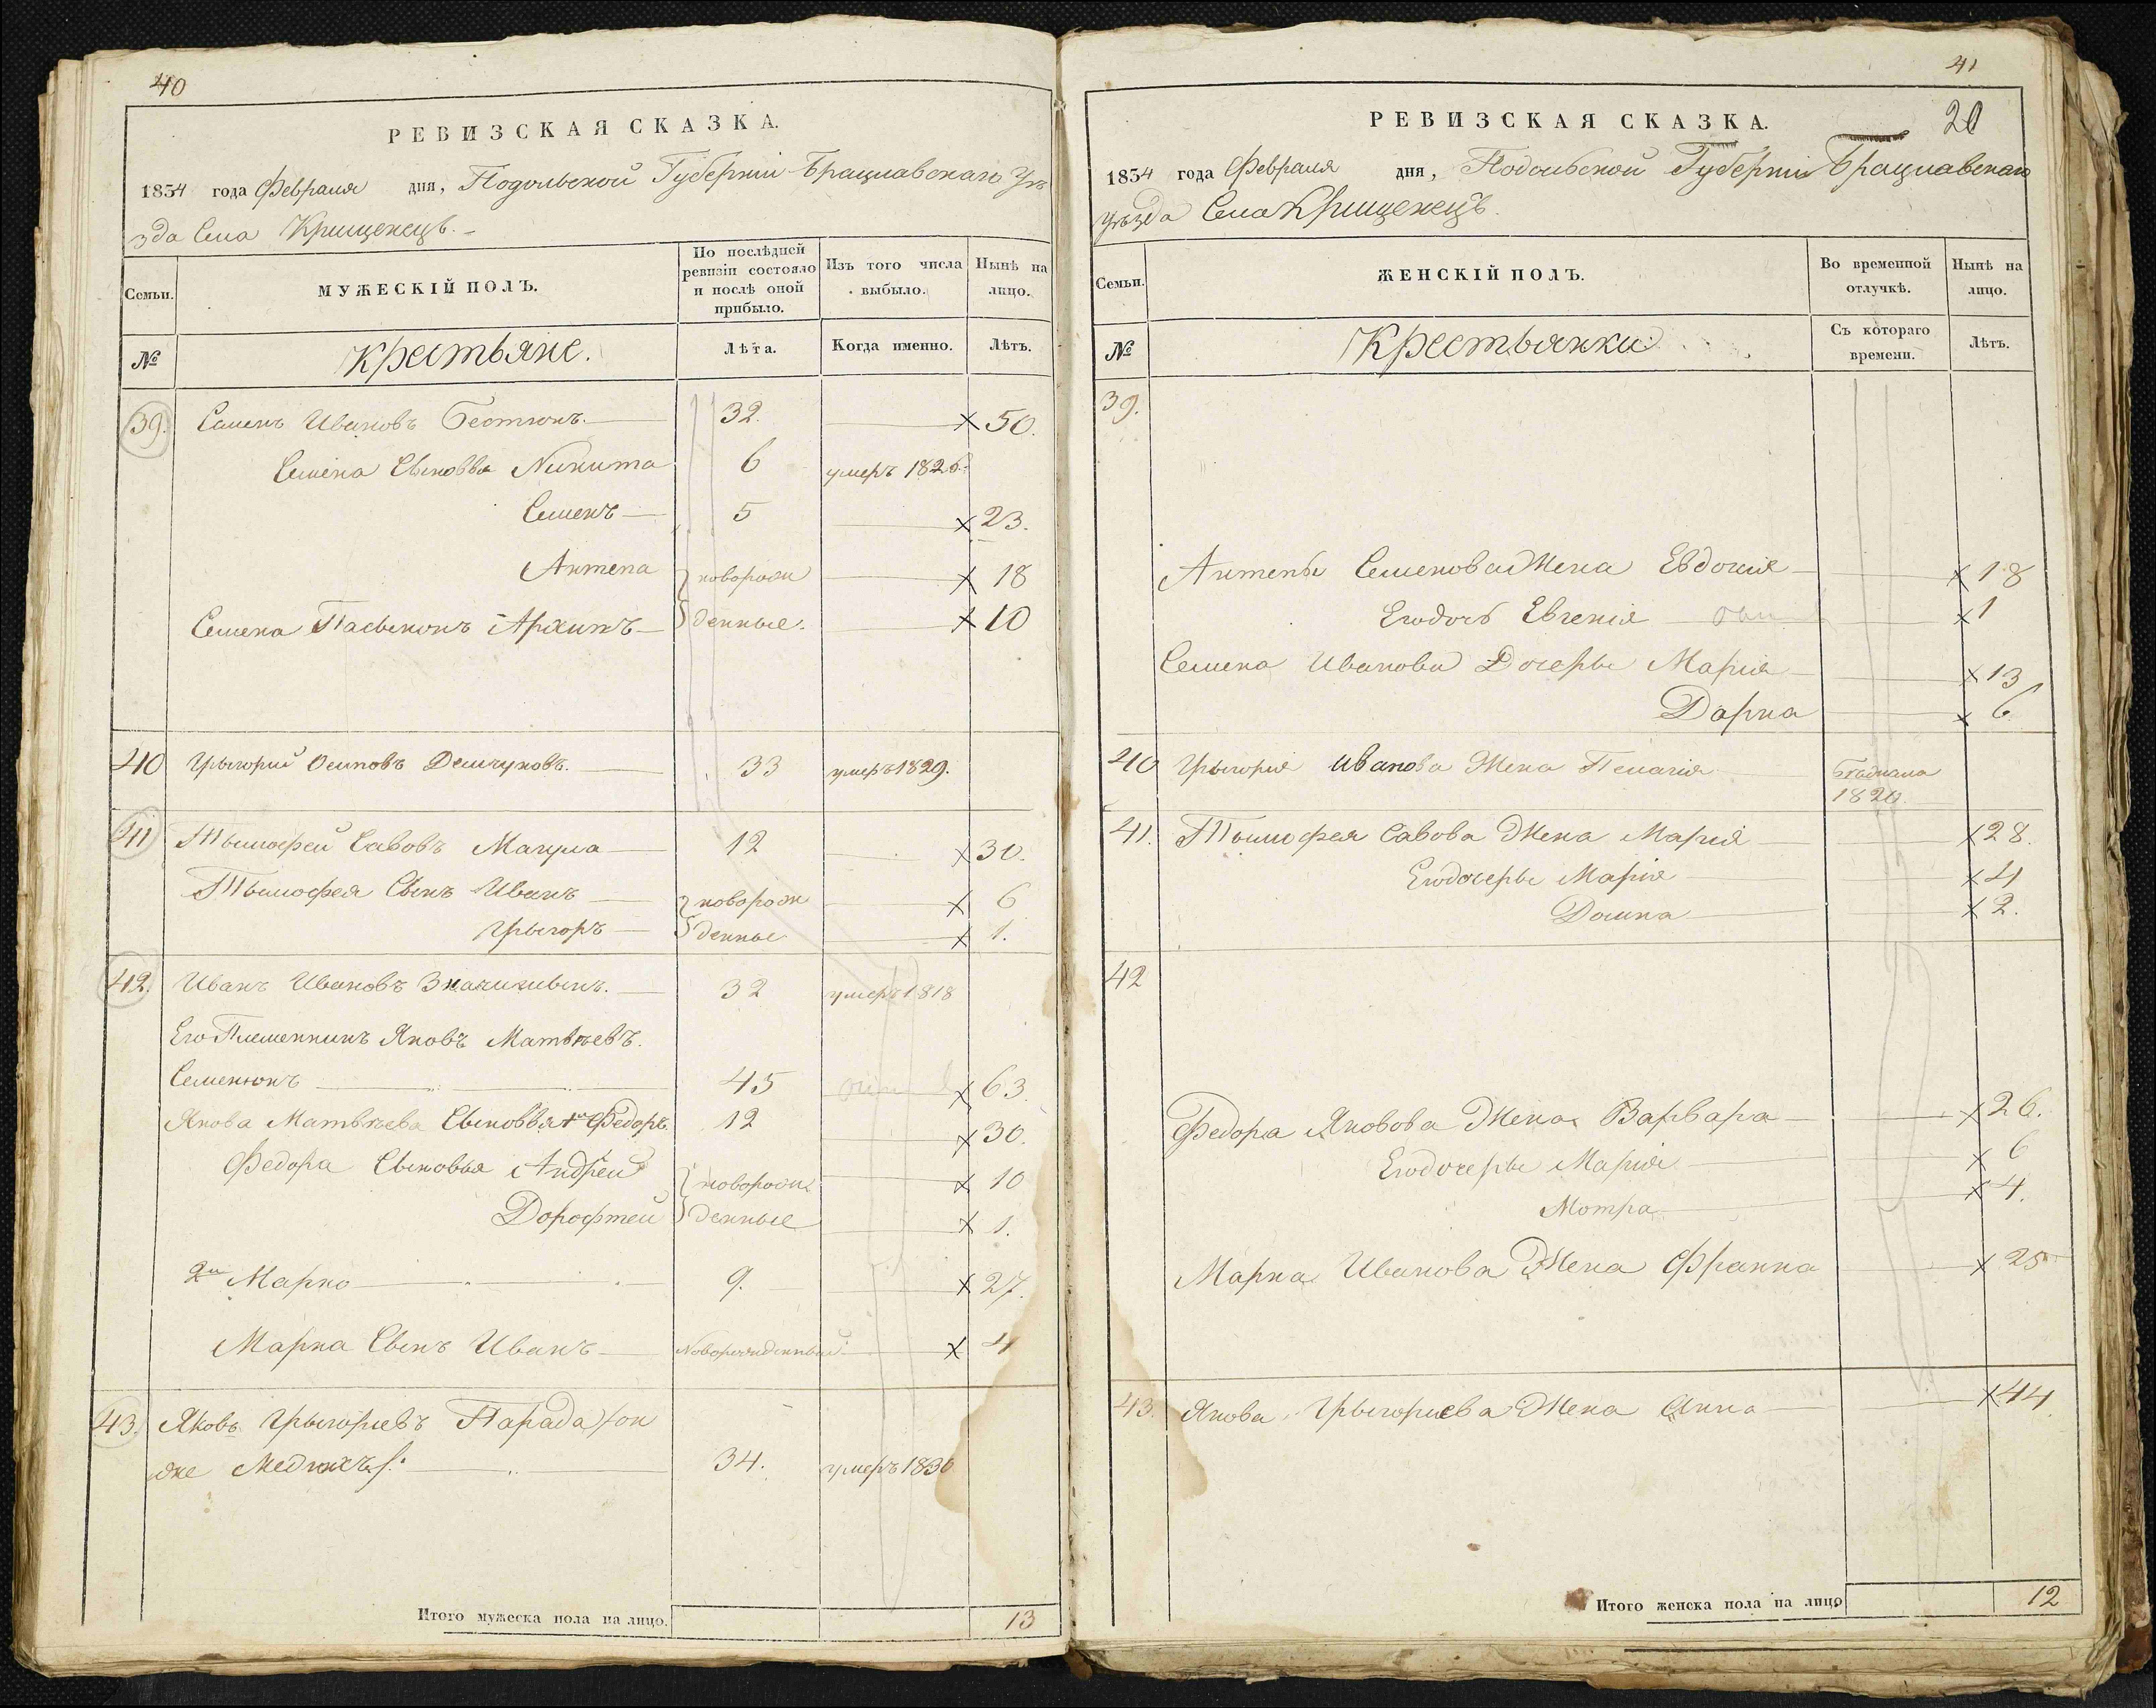 40
РЕВИЗСКАЯ СКАЗКА.
1834 года Февраля дня, Подольской Губерніи Брацлавскаго Уѣ
зда Села Крищенецъ.
Семьи.
МУЖЕСКІЙ ПОЛЪ.
По послѣдней ревизіи состояло и послѣ оной прибыло.
Изъ того числа выбыло.
Нынѣ на лицо.
№
Крестьяне.
Лѣта.
Когда именно.
Лѣтъ.
39. Семенъ Ивановъ 32. 50.
Семена Сыновья Никита 6 умеръ 1826.
Семенъ 5 23.
Антепа новорож 18
Семена Пасынокъ Архипъ денные. 10
40 Грыгорий Осиповъ Демчуковъ. 33 умеръ 1829.
41 Тымофей Савовъ 12 30.
Тымофея Сынъ Иванъ новорож 6
Грыгоръ денные 1.
42. Иванъ Ивановъ 32 умеръ 1818
Его Племенникъ Яковъ Матвѣевъ.
Семенюкъ 45 63.
Якова Матвѣева Сыновья 1й Федоръ 12 30.
Федора Сыновья Андрей новорож 10
Дорофтей денные 1.
2й Марко 9. 27.
Марка Сынъ Иванъ Новорожденный 4
43. Яковъ Грыгориевъ Парада /он
же 34. умеръ 1830
Итого мужеска пола на лицо. 13
41
20
РЕВИЗСКАЯ СКАЗКА.
1834 года Февраля дня, Подольской Губерніи Брацлавскаго
Уѣзда Села Крищенецъ.
Семьи.
ЖЕНСКІЙ ПОЛЪ.
Во временной отлучкѣ.
Нынѣ на лицо.
№
Крестьянки
Съ котораго времени.
Лѣтъ.
39.
Антепы Семенова Жена Евдокия 18
Егодочь Евгения 1
Семена Иванова Дочеры Мария 13
Дарка 6
40 Грыгория Иванова Жена Пелагия
41. Тымофея Савова Жена Мария 28.
Егодочеры Мария 4
Домка 2.
42
Федора Яковова Жена Варвара 26.
Егодочеры Мария 6
Мотра 4.
Марка Иванова Жена Франка 25
43. Якова Грыгориева Жена Анна 44
Итого женска пола на лицо 12